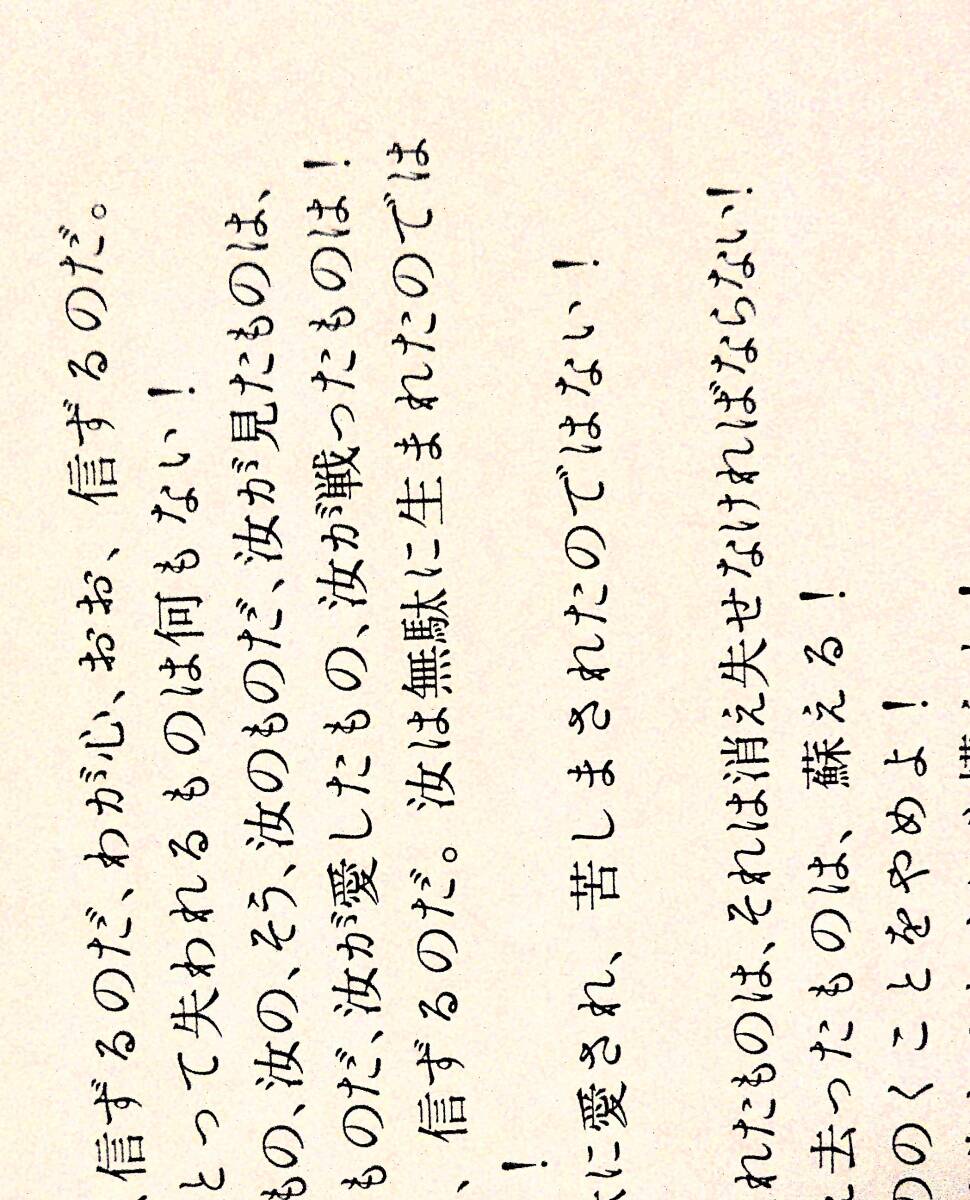 、信ずるのだ、わが心、おお、信ずるのだ。
とって失われるものは何もない！
もの、汝の、そう、汝のものだ、汝が見たものは、
ものだ、汝が愛したもの、汝が戦ったものは！
、信ずるのだ。汝は無駄に生まれたのでは
！
に愛され、苦しまされたのではない！
れたものは、それは消え失せなければならない！
去ったものは、蘇える！
ののくことをやめよ！